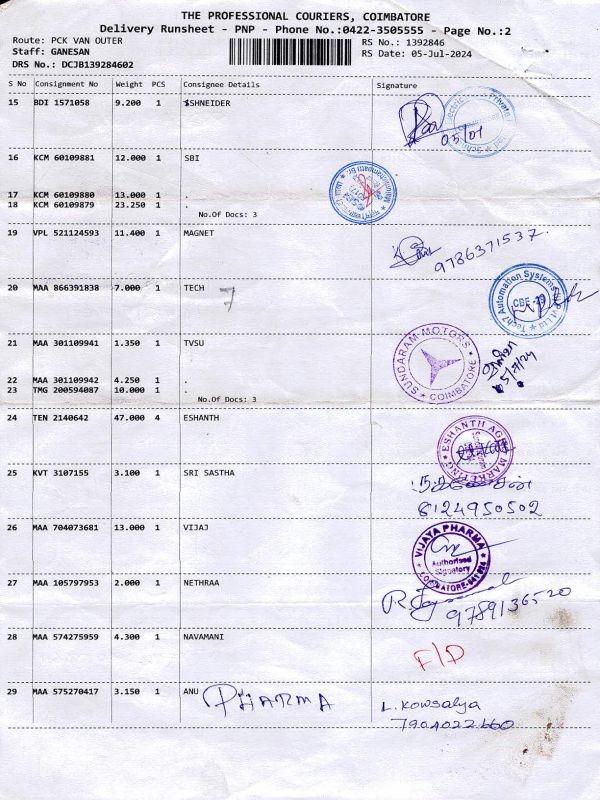 THE PROFESSIONAL COURIERS, COIMBATORE
Delivery Runsheet - PNP - Phone No.:0422-3505555 - Page No.:2
Route: PCK VAN OUTER RS No.: 1392846
Staff: GANESAN RS Date: 05-Jul-2024
DRS No.: DCJB139284602
S No Consignment No Weight PCS Consignee Details Signature
15 BDI 1571058 9.200 1 SHNEIDER
05/01
16 KCM 60109881 12.000 1 SBI
17 KCM 60109880 13.000 1 .
18 KCM 60109879 23.250 1 .
No.Of Docs: 3
19 VPL 521124593 11.400 1 MAGNET
9786371537.
20 MAA 866391838 7.000 1 TECH 7
Tech7 Automation Systems Pvt Ltd
CBE - 29
21 MAA 301109941 1.350 1 TVSU
SUNDARAM MOTORS
COIMBATORE
5/7/24
22 MAA 301109942 4.250 1 .
23 TMG 200594087 10.000 1 .
No.Of Docs: 3
24 TEN 2140642 47.000 4 ESHANTH
ESHANTH AGRI MARKETING
25 KVT 3107155 3.100 1 SRI SASTHA
8124950502
26 MAA 704073681 13.000 1 VIJAJ
VIJAYA PHARMA
Authorised
Signatory
COIMBATORE-641 024
27 MAA 105797953 2.000 1 NETHRAA
9789136520
28 MAA 574275959 4.300 1 NAVAMANI
F/D
29 MAA 575270417 3.150 1 ANU PHARMA
L. Kowsalya
7904022660